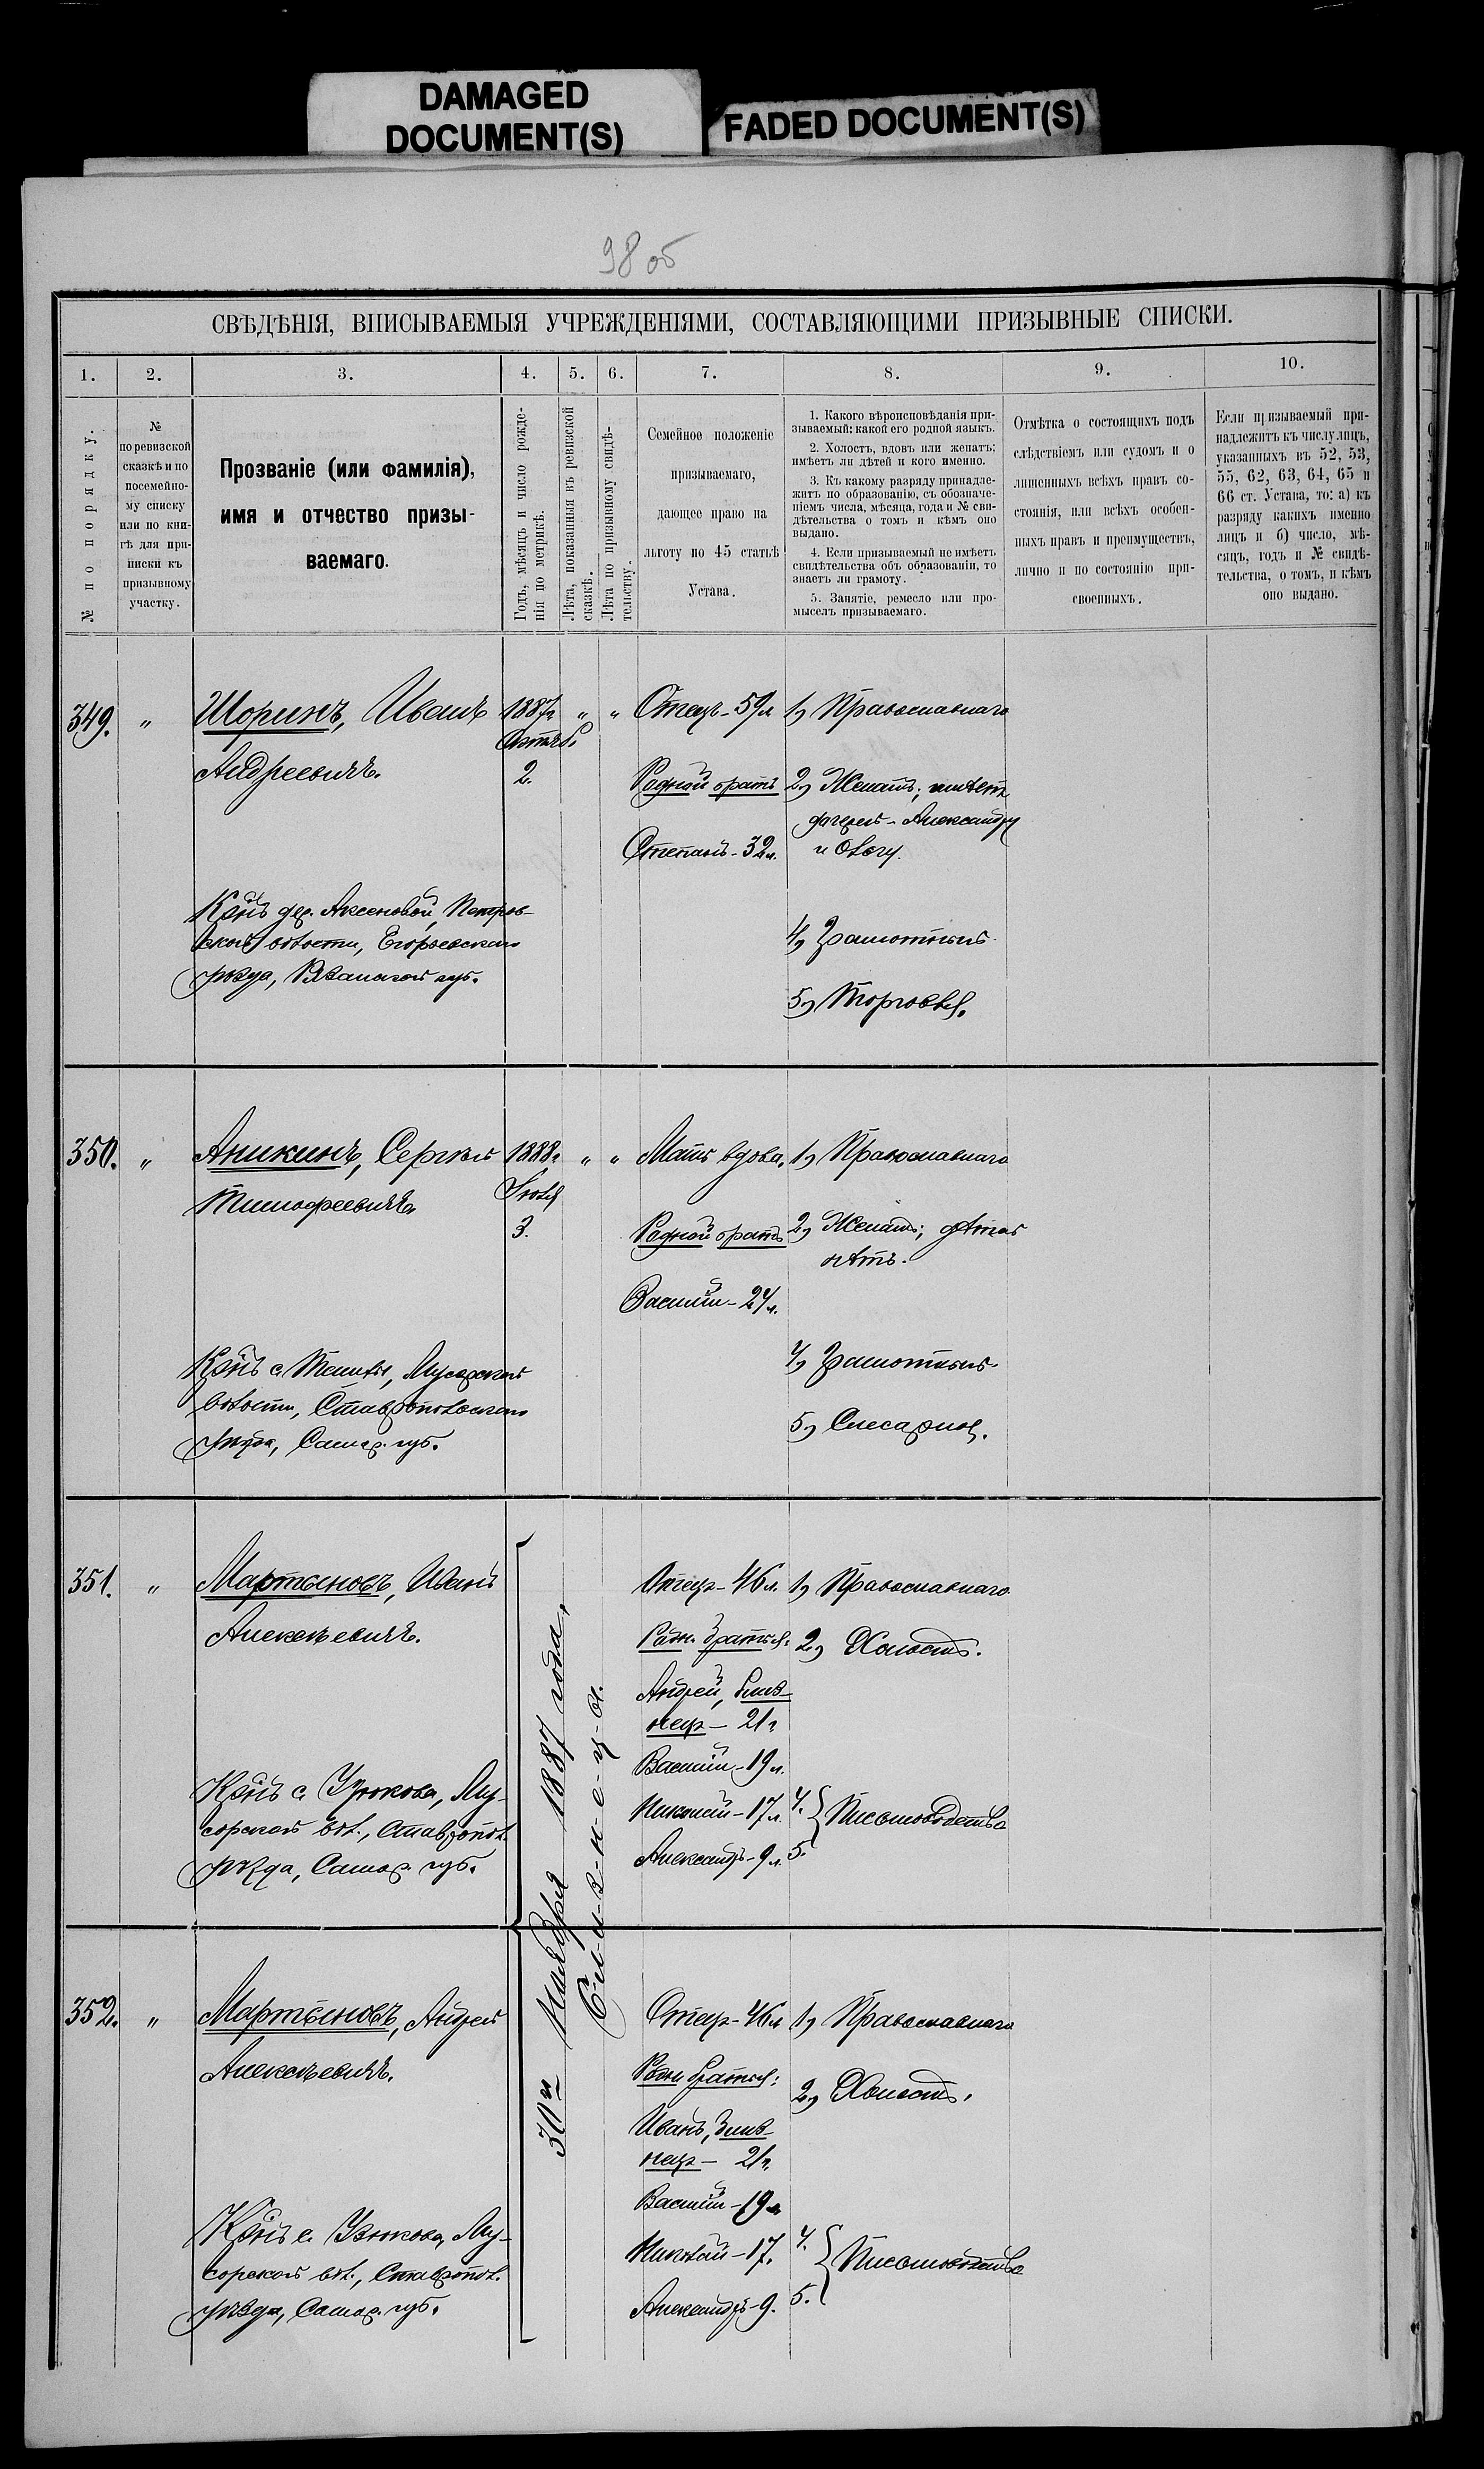 DAMAGED
DOCUMENT(S)
FADED DOCUMENT(S)
98 об
СВѢДѢНІЯ, ВПИСЫВАЕМЫЯ УЧРЕЖДЕНІЯМИ, СОСТАВЛЯЮЩИМИ ПРИЗЫВНЫЕ СПИСКИ.
1. 2. 3. 4. 5. 6. 7. 8. 9. 10.
№ по порядку.
№
по ревизской
сказкѣ и по
посемейно-
му списку
или по кни-
гѣ для при-
писки къ
призывному
участку.
Прозваніе (или фамилія),
имя и отчество призы-
ваемаго.
Годъ, мѣсяцъ и число рожде-
нія по метрикѣ.
Лѣта, показанныя въ ревизской
сказкѣ.
Лѣта по призывному свидѣ-
тельству.
Семейное положеніе
призываемаго,
дающее право на
льготу по 45 статьѣ
Устава.
1. Какого вѣроисповѣданія при-
зываемый: какой его родной языкъ.
2. Холостъ, вдовъ или женатъ:
имѣетъ ли дѣтей и кого именно.
3. Къ какому разряду принадле-
житъ по образованію, съ обозначе-
ніемъ числа, мѣсяца, года и № сви-
дѣтельства о томъ и кѣмъ оно
выдано.
4. Если призываемый не имѣетъ
свидѣтельства объ образованіи, то
знаетъ ли грамоту.
5. Занятіе, ремесло или про-
мыселъ призываемаго.
Отмѣтка о состоящихъ подъ
слѣдствіемъ или судомъ и о
лишенныхъ всѣхъ правъ со-
стоянія, или всѣхъ особен-
ныхъ правъ и преимуществъ,
лично и по состоянію при-
своенныхъ.
Если призываемый при-
надлежитъ къ числу лицъ,
указанныхъ въ 52, 53,
55, 62, 63, 64, 65 и
66 ст. Устава, то: а) къ
разряду какихъ именно
лицъ и б) число, мѣ-
сяцъ, годъ и № свидѣ-
тельства, о томъ, и кѣмъ
оно выдано.
349. „ Шоринъ, Иванъ
Андреевичъ.
Кр-нъ дер. Аксеновой, Петров-
ской волости, Егорьевскаго
уѣзда, Рязанской губ.
1887 г.
Октяб.
2.
„ „
Отецъ - 59 л.
Родной братъ
Степанъ - 32 л.
1, Православнаго
2, Женатъ; имѣетъ
дочерей - Александру
и Ольгу.
4, Грамотный.
5, Торговля.
350. „ Аникинъ, Сергѣй
Тимофеевичъ
Кр-нъ с. Ташлы, Мусорской
волости, Ставропольскаго
уѣзда, Самар. губ.
1888 г.
Іюля
3.
„ „
Мать вдова.
Родной братъ
Василій - 24 л.
1, Православнаго
2, Женатъ; дѣтей
нѣтъ.
4, Грамотный.
5, Слесарной.
351. „ Мартыновъ, Иванъ
Алексѣевичъ.
Кр-нъ с. Узюкова, Му-
сорской вол., Ставропол.
уѣзда, Самар. губ.
30-го Ноября 1887 года,
б-л-и-з-н-е-ц-ы.
Отецъ - 46 л.
Родн. братья:
Андрей, близ-
нецъ - 21 г.
Василій - 19 л.
Николай - 17 л.
Александръ - 9 л.
1, Православнаго
2, Холостъ.
4. { Письмоводство
5.
352. „ Мартыновъ, Андрей
Алексѣевичъ.
Кр-нъ с. Узюкова, Му-
сорской вол., Ставропол.
уѣзда, Самар. губ.
Отецъ - 46 л.
Родн. братья:
Иванъ, близ-
нецъ - 21 г.
Василій - 19 л.
Николай - 17.
Александръ - 9.
1, Православнаго
2, Холостъ.
4. { Письмоводство
5.